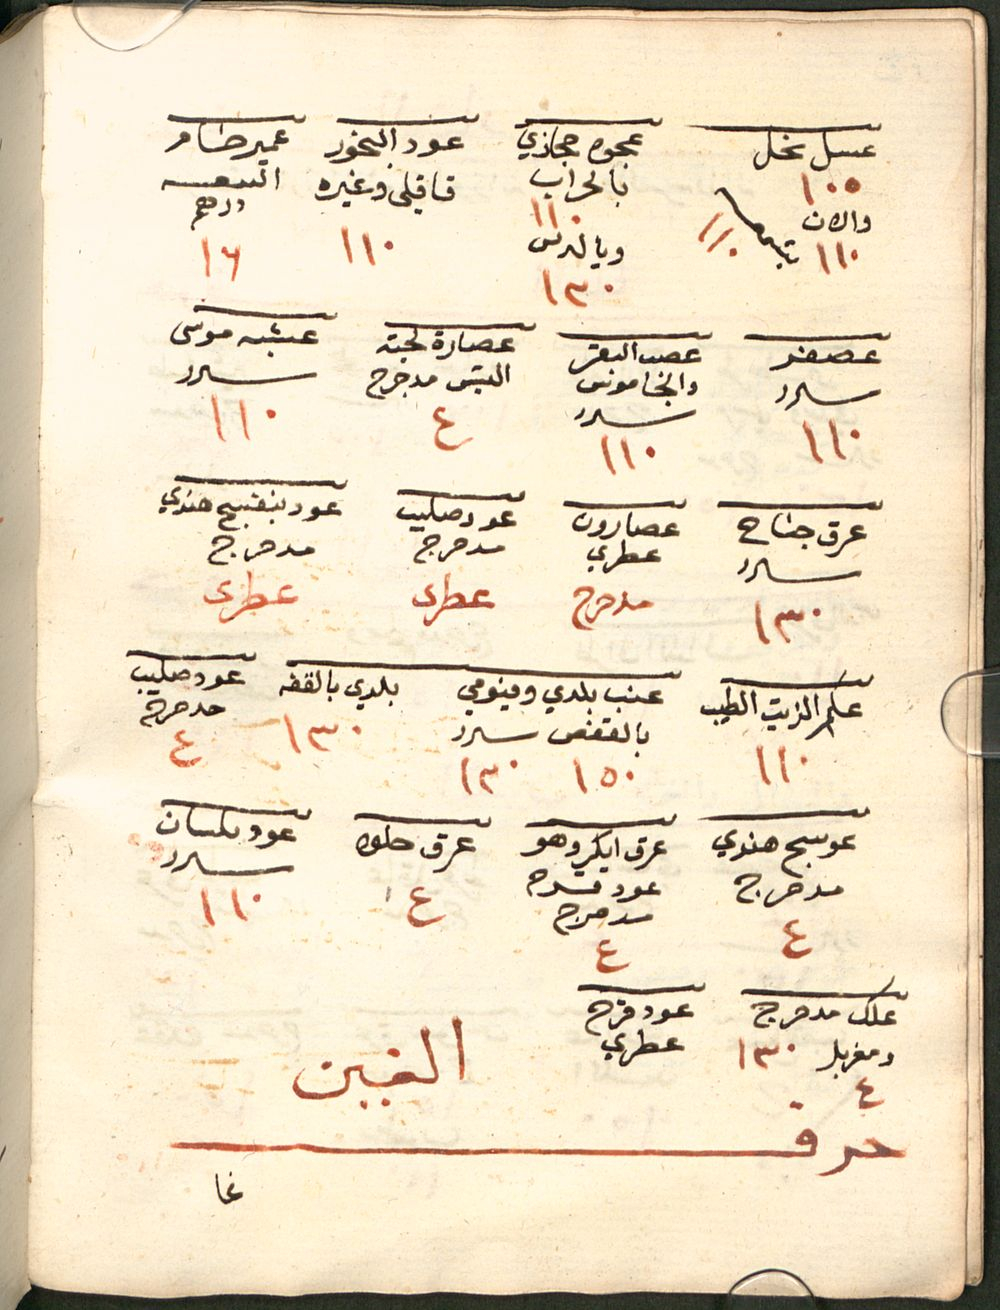 عسل نخل
١٠٥
والان
١١٠
١١٠
عجوه حجازي
بالجراب
١١٠
وبالدس
١٣٠
عود البخور
قاقلي وغيره
١١٠
عمبر خام
درهم
١٦
عصفر
سارد
١١٠
عصب البقر
والجاموس
سارد
١١٠
عصارة لحية
التيس مدحرج
٤
عشبه موسى
سارد
١١٠
عرق جناح
سارد
١٣٠
عصارون
عطري
مدحرج
عود صليب
مدحرج
عطرى
عود بنفسج هندي
مدحرج
عطرى
علم الزيت الطيب
١١٠
عنب بلدي وفيومي
بالقفص سارد
١٥٠ ١٣٠
بلدي بالقفه
١٣٠
عود صليب
مدحرج
٤
عوسج هندي
مدحرج
٤
عرق ايكر وهو
عود قرح
مدحرج
٤
عرق حلوه
٤
عود بلسان
سارد
١١٠
علك مدحرج
ومغربل ١٣٠
٤
عود قرح
عطري
حرف الغين
غا